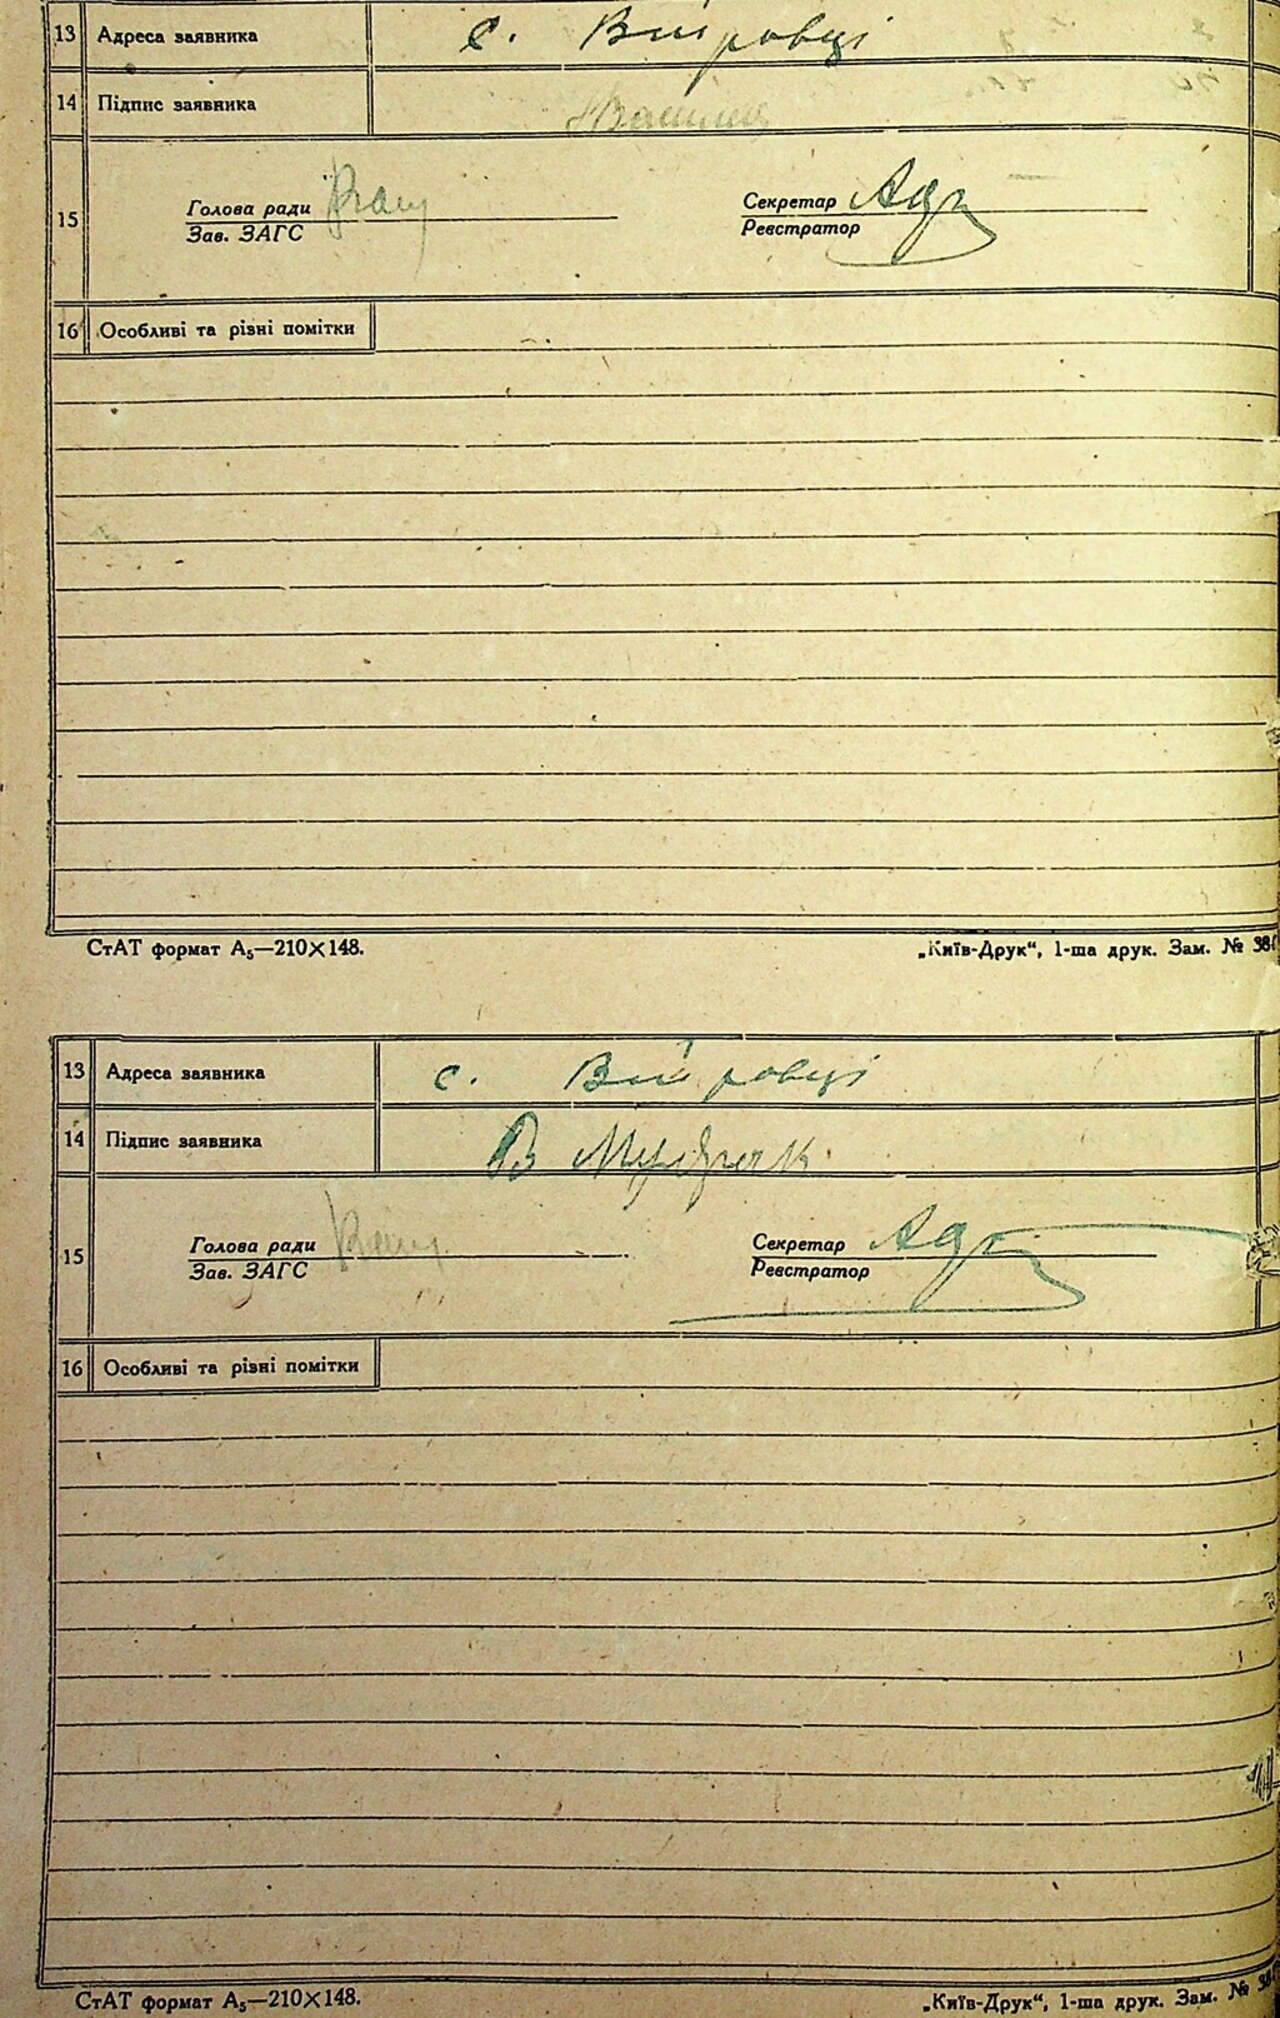 13 Адреса заявника с. Війровці
14 Підпис заявника
15 Голова ради Секретар
Зав. ЗАГС Реєстратор
16 Особливі та різні помітки
СтАТ формат А₅—210×148. „Київ-Друк“, 1-ша друк. Зам. №
13 Адреса заявника с. Війровці
14 Підпис заявника В
15 Голова ради Секретар
Зав. ЗАГС Реєстратор
16 Особливі та різні помітки
СтАТ формат А₅—210×148. „Київ-Друк“, 1-ша друк. Зам. №